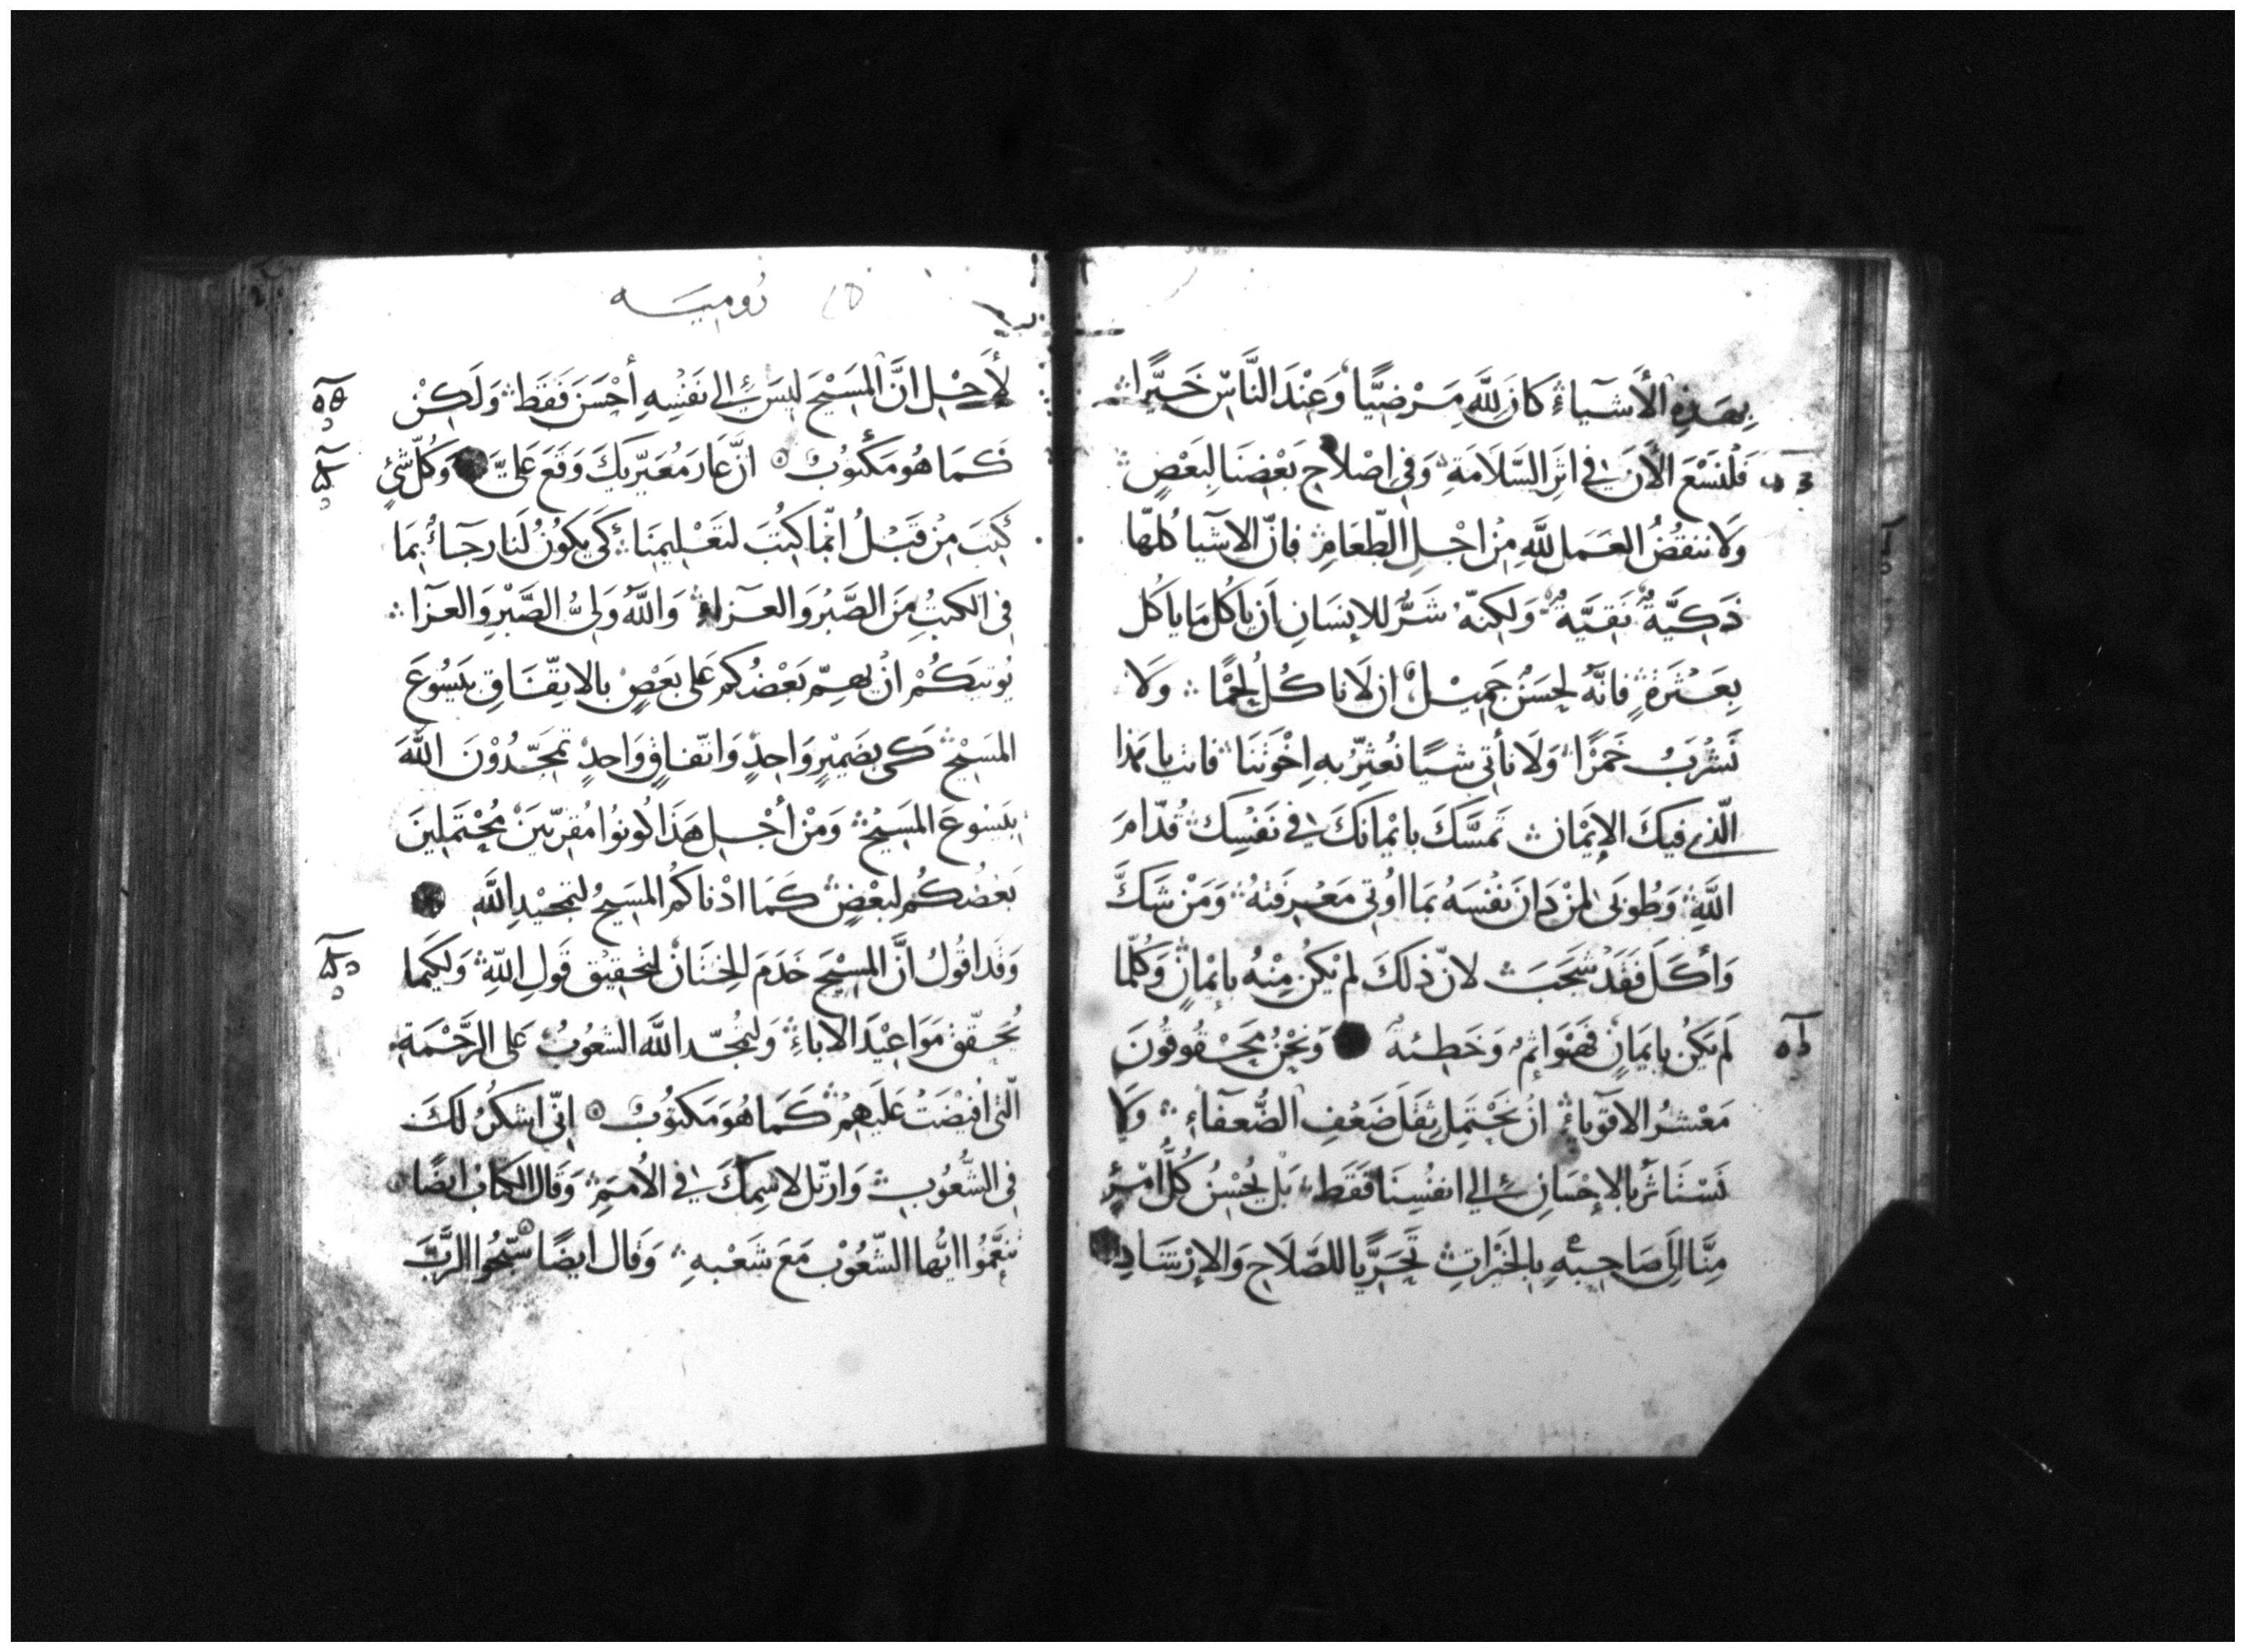 بِهَذِهِ الأَشيآءِ كانَ للَّهِ مَرْضِيًّا وَعِنْدَ النَّاسِ خَيِّرًا
فَلْنَسْعَ الأَنَ في اثَرِ السَّلَامَةِ وَفي اصْلاحِ بَعْضِنَا لِبَعْضٍ
وَلا ننقُضُ العَمَل للَّهِ مِنْ اجْلِ الطَّعَامِ فانّ الاشيا كُلّها
ذَكِيَّةٌ نَقِيَّةٌ وَلكِنّهُ شَرٌّ للإنسَانِ اَن ياكُل مَا ياكُل
بِعَثْرَةٍ فانَّهُ لحَسَنٌ جَمِيْلٌ ان لَا ناكُل لحْمًا وَلَا
نَشْرَبُ خَمْرًا وَلَا نأتي شيًا نُعْثِرُ بهِ اِخْوَتَنَا فانت يا هَذا
الّذي فيكَ الإيْمَان تَمسَّكَ بايْمانكَ في نَفْسِكَ قُدّامَ
اللَّهِ وَطُوبَى لمَنْ دَانَ نَفْسَهُ بمَا اوُتي مَعْرِفَتهُ وَمَنْ شَكَّ
وَأكَلَ فَقَدْ شَجَبَ لانّ ذلكَ لم يَكُنْ مِنْهُ بايْمَانٍ وَكُلّما
لَم يَكُن بايمَانٍ فَهُوَ اثمٌ وَخَطِئةٌ وَنحْنُ مَحْقُوقُونَ
مَعْشرُ الاقوياءِ انْ نَحْتَمِل ثِقَلَ ضَعْفِ الضُّعَفآءِ وَلَا
نَسْتَاثَرُ بالإحْسَانِ الي انفُسِنَا فَقَط بَل يُحْسِنُ كُلُّ امْرئٍ
مِنَّا اِلَى صَاحِبهِ بالخَيْرَاتِ تحَرِّيًا للصَّلَاحِ وَالإرْشَادِ
رُوميَه
لأَجْلِ انَّ المَسِيْحَ ليسَ الي نَفْسِهِ أَحْسَنَ فَقَط وَلَكِنْ
كَمَا هُوَ مَكْتوُبٌ انَّ عَارَ مُعَيّريكَ وَقَعَ عَليَّ وَكُلّ شَئٍ
كُتِبَ مِنْ قَبْلُ انّما كُتِبَ لتَعْليمِنَا كَي يَكُونُ لَنَا رجَآءٌ بِمَا
في الكتبُ مِنَ الصَّبْرُ وَالعزاءِ وَاللَّهُ وَليُّ الصَّبْرِ وَالعزَا
يُوتيَكُمْ انْ يهتمّ بَعْضُكُم عَلى بَعْضٍ بالاتِفَاقِ بيَسُوعَ
المَسِيْحُ كَي بضَمِيْرٍ وَاحِدٍ وَاتّفاقٍ وَاحدٍ تمجِّدُوْنَ اللَّهَ
بيَسُوعَ المَسِيْحُ وَمنْ أَجْلِ هَذَا كُونوُا مُقرّبيَن مُحْتَملينَ
بَعْضُكُم لبَعْضٍ كَمَا ادْناكُم المَسِيحُ لتمجيْدِ اللَّهِ
وَقَد اقُولُ انَّ المسِيْحَ خَدَمَ الخِتَانْ لتحقيْقِ قَولِ اللَّهِ وَلكَيما
يُحَقّقْ مَوَاعِيْدَ الاباءِ وَليُمجّد اللَّهَ الشعُوبُ عَلى الرَّحْمَةِ
الّتي افيْضَتْ عَلَيْهِمْ كَمَا هُوَ مَكتوُبٌ انّي اشكُرُ لَكَ
في الشُّعُوبِ وَارتّل لاسْمِكَ في الأُمَمِ وَقَال الكتَابُ ايضًا
تنعَّمُوا ايُّها الشّعُوْب مَعَ شَعْبهِ وَقَال ايضًا سَبِّحُوا الرَّبَّ